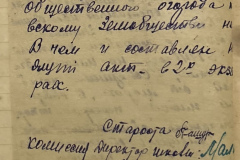 общественного огорода
вскому Земобществу
В чем и составлен н
акт - в 2х экз
рах.
Староста
Комиссия Директор школы